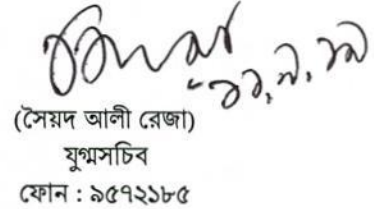 (সৈয়দ আলী রেজা)
যুগ্মসচিব
ফোন : ৯৫৭২১৮৫